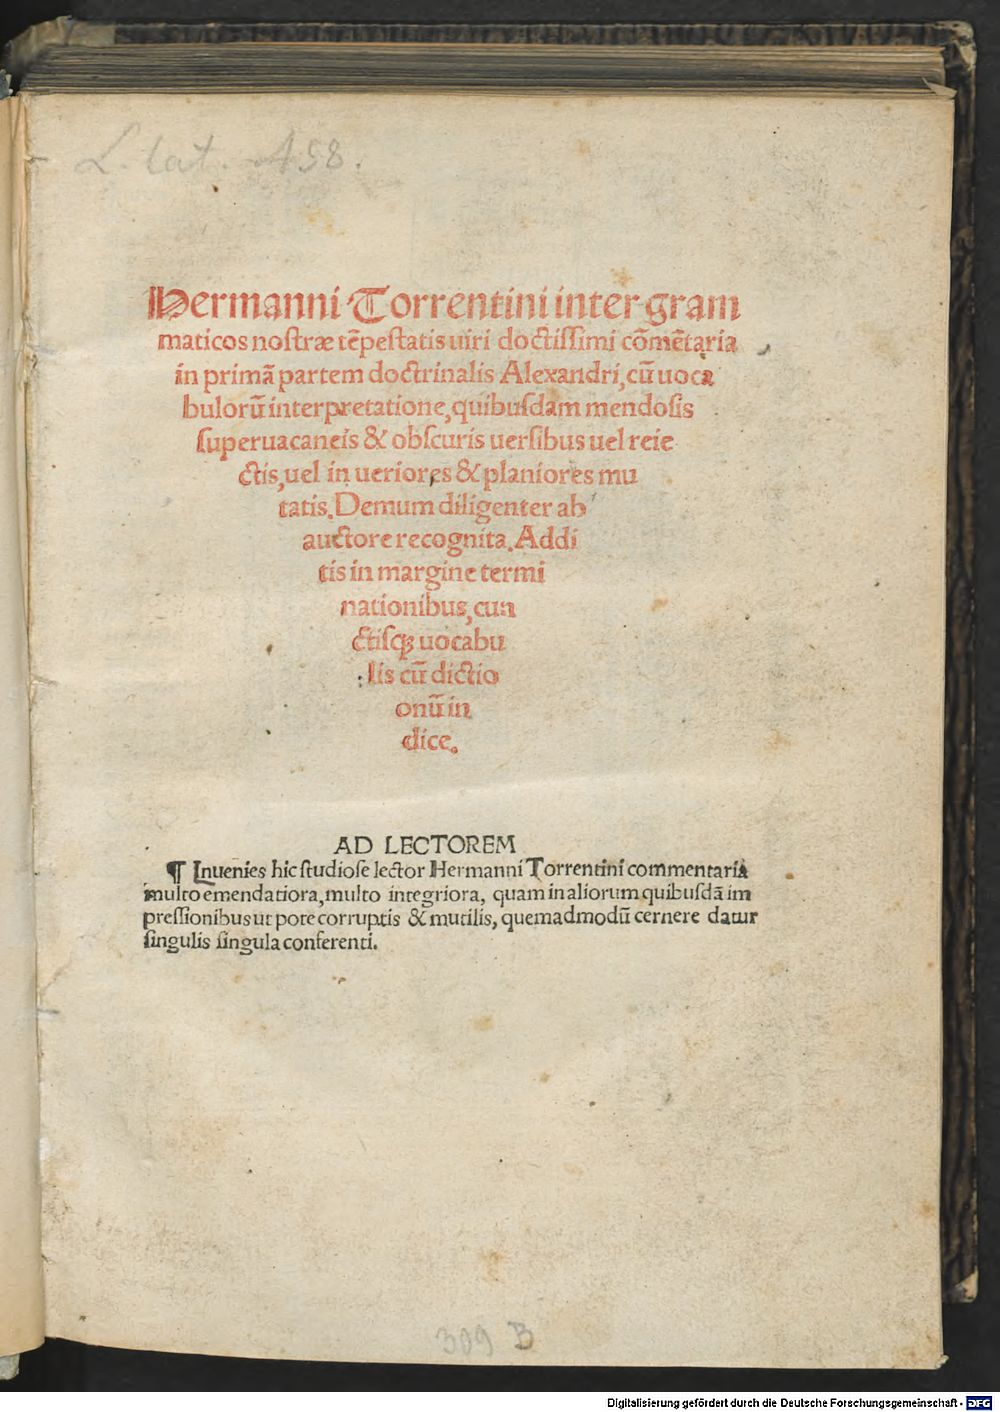 L. lat. 458.
Hermanni Torrentini inter gram
maticos nostræ tẽpestatis uiri doctissimi cõmẽtaria
in primã partem doctrinalis Alexandri, cũ uoca
bulorũ interpretatione, quibusdam mendosis
superuacaneis & obscuris uersibus uel reie
ctis, uel in ueriores & planiores mu
tatis. Demum diligenter ab
auctore recognita. Addi
tis in margine termi
nationibus, cun
ctisqꝫ uocabu
lis cũ dictio
onũ in
dice.
AD LECTOREM
¶ Inuenies hic studiose lector Hermanni Torrentini commentaria
multo emendatiora, multo integriora, quam in aliorum quibusdã im
pressionibus ut pote corruptis & mutilis, quemadmodũ cernere datur
singulis singula conferenti.
309 B
Digitalisierung gefördert durch die Deutsche Forschungsgemeinschaft - DFG